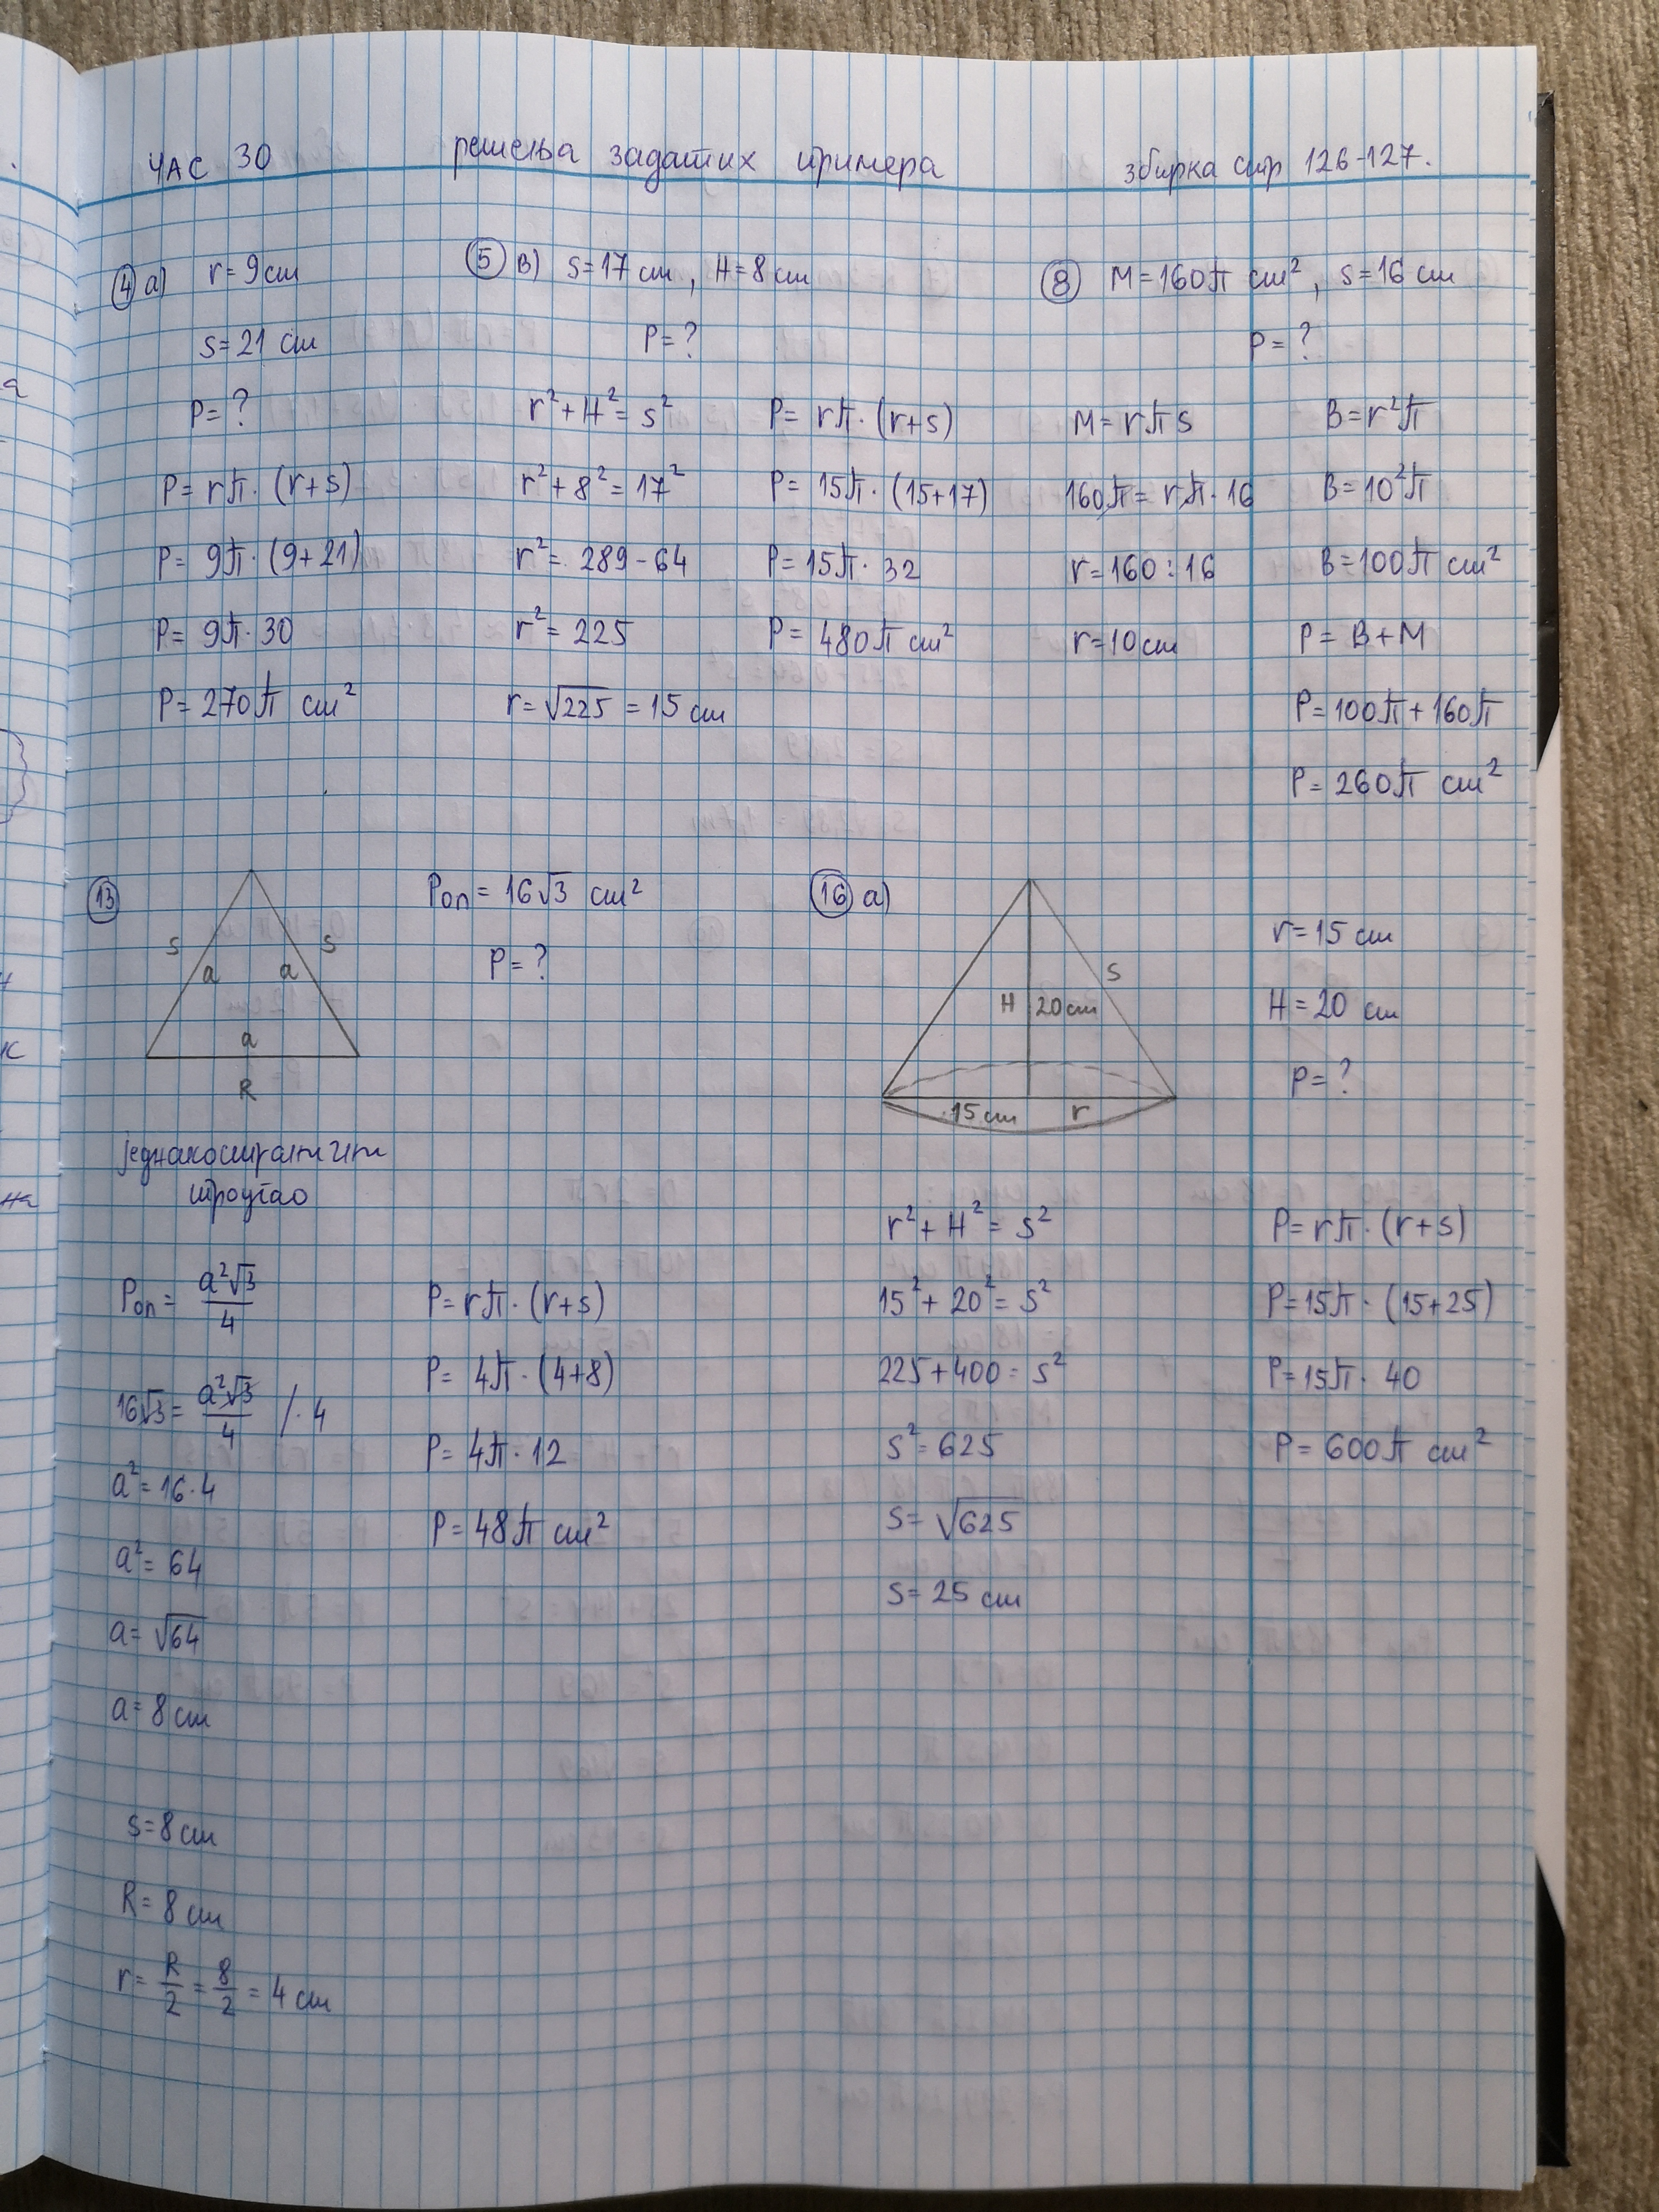 ЧАС 30 решења задатих примера збирка стр 126-127.
④ а) r = 9 cm
s = 21 cm
P = ?
P = rπ · (r+s)
P = 9π · (9+21)
P = 9π · 30
P = 270π cm²
⑤ в) s = 17 cm, H = 8 cm
P = ?
r² + H² = s²
r² + 8² = 17²
r² = 289 - 64
r² = 225
r = √225 = 15 cm
P = rπ · (r+s)
P = 15π · (15+17)
P = 15π · 32
P = 480π cm²
⑧ M = 160π cm², s = 16 cm
P = ?
M = rπs
160π = rπ · 16
r = 160 : 16
r = 10 cm
B = r²π
B = 10²π
B = 100π cm²
P = B + M
P = 100π + 160π
P = 260π cm²
⑬
s s
a a
a
R
Pоп = 16√3 cm²
P = ?
једнакостранични
троугао
Pоп = a²√3/4
16√3 = a²√3/4 /· 4
a² = 16 · 4
a² = 64
a = √64
a = 8 cm
s = 8 cm
R = 8 cm
r = R/2 = 8/2 = 4 cm
P = rπ · (r+s)
P = 4π · (4+8)
P = 4π · 12
P = 48π cm²
⑯ а)
s
H 20cm
15 cm r
r = 15 cm
H = 20 cm
P = ?
r² + H² = s²
15² + 20² = s²
225 + 400 = s²
s² = 625
s = √625
s = 25 cm
P = rπ · (r+s)
P = 15π · (15+25)
P = 15π · 40
P = 600π cm²